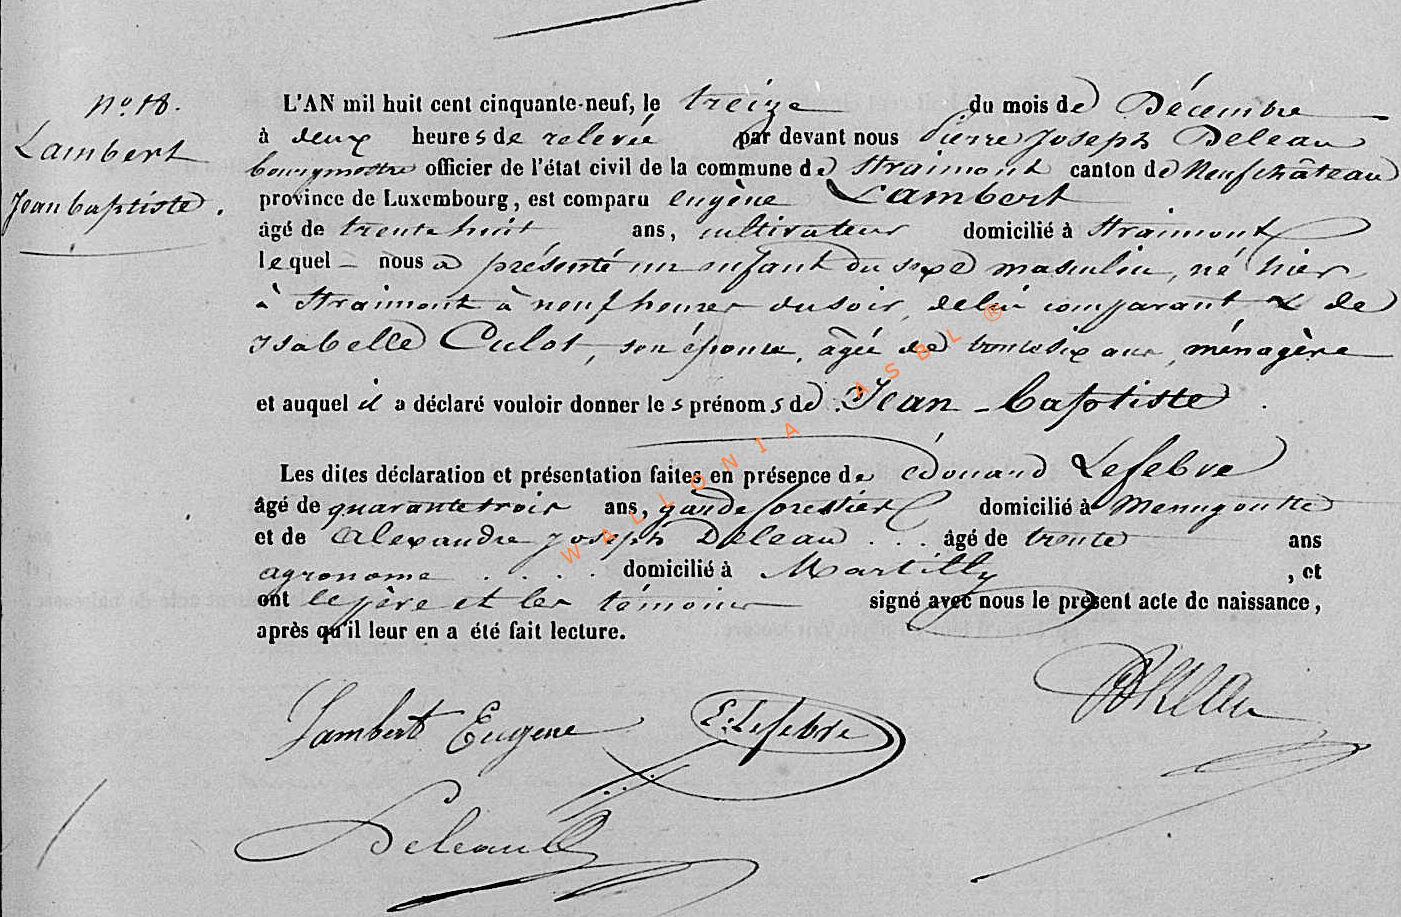 nº 18.
Lambert
Jean baptiste.
L'AN mil huit cent cinquante-neuf, le treize du mois de Décembre
à deux heures de relevée par devant nous Pierre Joseph Deleau
bourgmestre officier de l'état civil de la commune de Straimont canton de Neufchâteau
province de Luxembourg, est comparu Eugène Lambert
âgé de trente huit ans, cultivateur domicilié à Straimont
lequel nous a présenté un enfant du sexe masculin, né hier
à Straimont à neuf heures du soir, de lui comparant & de
Isabelle Culot, son épouse, âgée de trente six ans, ménagère
et auquel il a déclaré vouloir donner les prénoms de Jean-baptiste.
Les dites déclaration et présentation faites en présence de édouard Lefebvre
âgé de quarante trois ans, garde forestier domicilié à Menugoutte
et de Alexandre Joseph Deleau . . . âgé de trente ans
agronome . . . . domicilié à Martilly , et
ont le père et les témoins signé avec nous le présent acte de naissance,
après qu'il leur en a été fait lecture.
WALLONIA ASBL ®
Lambert Eugene E. Lefebvre
Deleau